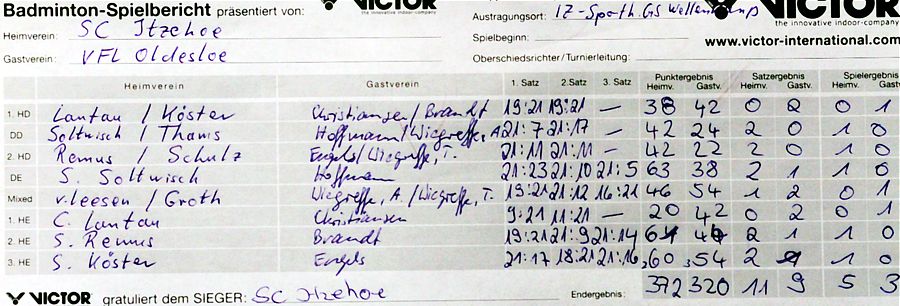 Badminton-Spielbericht präsentiert von: VICTOR
the innovative indoor-company
Austragungsort: IZ-Sporth. GS Wellenkamp
VICTOR
the innovative indoor-company
Heimverein: SC Itzehoe
Spielbeginn:
www.victor-international.com
Gastverein: VFL Oldesloe
Oberschiedsrichter/Turnierleitung:
Heimverein Gastverein 1. Satz 2. Satz 3. Satz Punktergebnis Satzergebnis Spielergebnis
Heimv. Gastv. Heimv. Gastv. Heimv. Gastv.
1. HD Lantau / Köster Christiansen / Brandt 19:21 19:21 — 38 42 0 2 0 1
DD Soltwisch / Thams Hoffmann / Wiegreffe, A. 21:7 21:17 — 42 24 2 0 1 0
2. HD Remus / Schulz Engels / Wiegreffe, T. 21:11 21:11 — 42 22 2 0 1 0
DE S. Soltwisch Hoffmann 21:23 21:10 21:5 63 38 2 1 1 0
Mixed v. Leesen / Groth Wiegreffe, A. / Wiegreffe, T. 19:21 21:12 16:21 46 54 1 2 0 1
1. HE C. Lantau Christiansen 9:21 11:21 — 20 42 0 2 0 1
2. HE S. Remus Brandt 19:21 21:9 21:14 61 44 2 1 1 0
3. HE S. Köster Engels 21:17 18:21 21:16 60 54 2 1 1 0
VICTOR gratuliert dem SIEGER: SC Itzehoe Endergebnis: 372 320 11 9 5 3